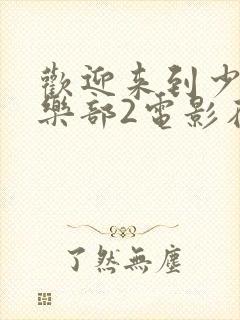 歡迎来到少
樂部2電影
了然無塵